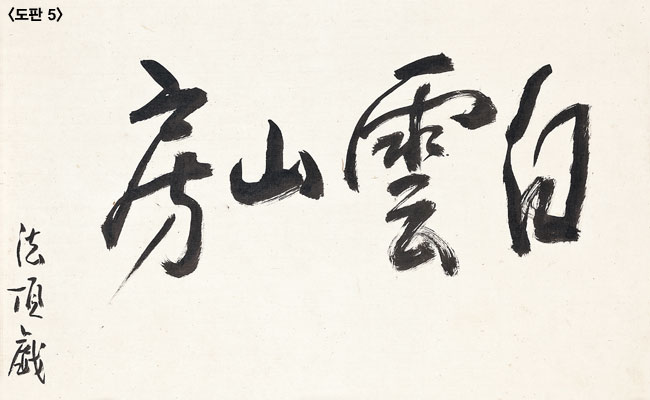 〈도판 5〉
白雲山房
法頂戱